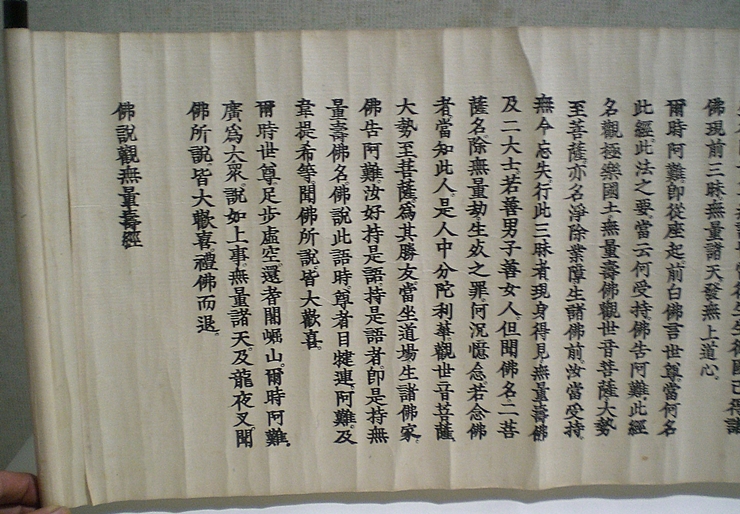 佛現前三昧。無量諸天發無上道心。
爾時阿難即從座起前白佛言世尊。當何名
此經此法之要。當云何受持。佛告阿難。此經
名觀極樂國土。無量壽佛觀世音菩薩大勢
至菩薩。亦名淨除業障生諸佛前。汝當受持。
無令忘失。行此三昧者現身得見。無量壽佛
及二大士。若善男子善女人。但聞佛名二菩
薩名。除無量劫。生死之罪。何況憶念。若念佛
者。當知此人。是人中分陀利華。觀世音菩薩
大勢至菩薩。爲其勝友。當坐道場生諸佛家。
佛告阿難。汝好持是語。持是語者。即是持無
量壽佛名。佛說此語時。尊者目犍連。阿難。及
韋提希等。聞佛所說。皆大歡喜。
爾時世尊。足步虛空。還耆闍崛山。爾時阿難。
廣爲大衆。說如上事。無量諸天。及龍夜叉。聞
佛所說。皆大歡喜。禮佛而退。
佛說觀無量壽經